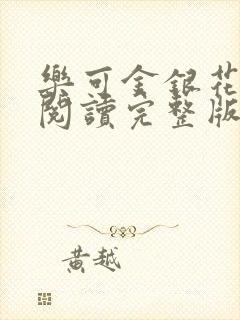 樂可金銀花
閱讀完整版
黃越